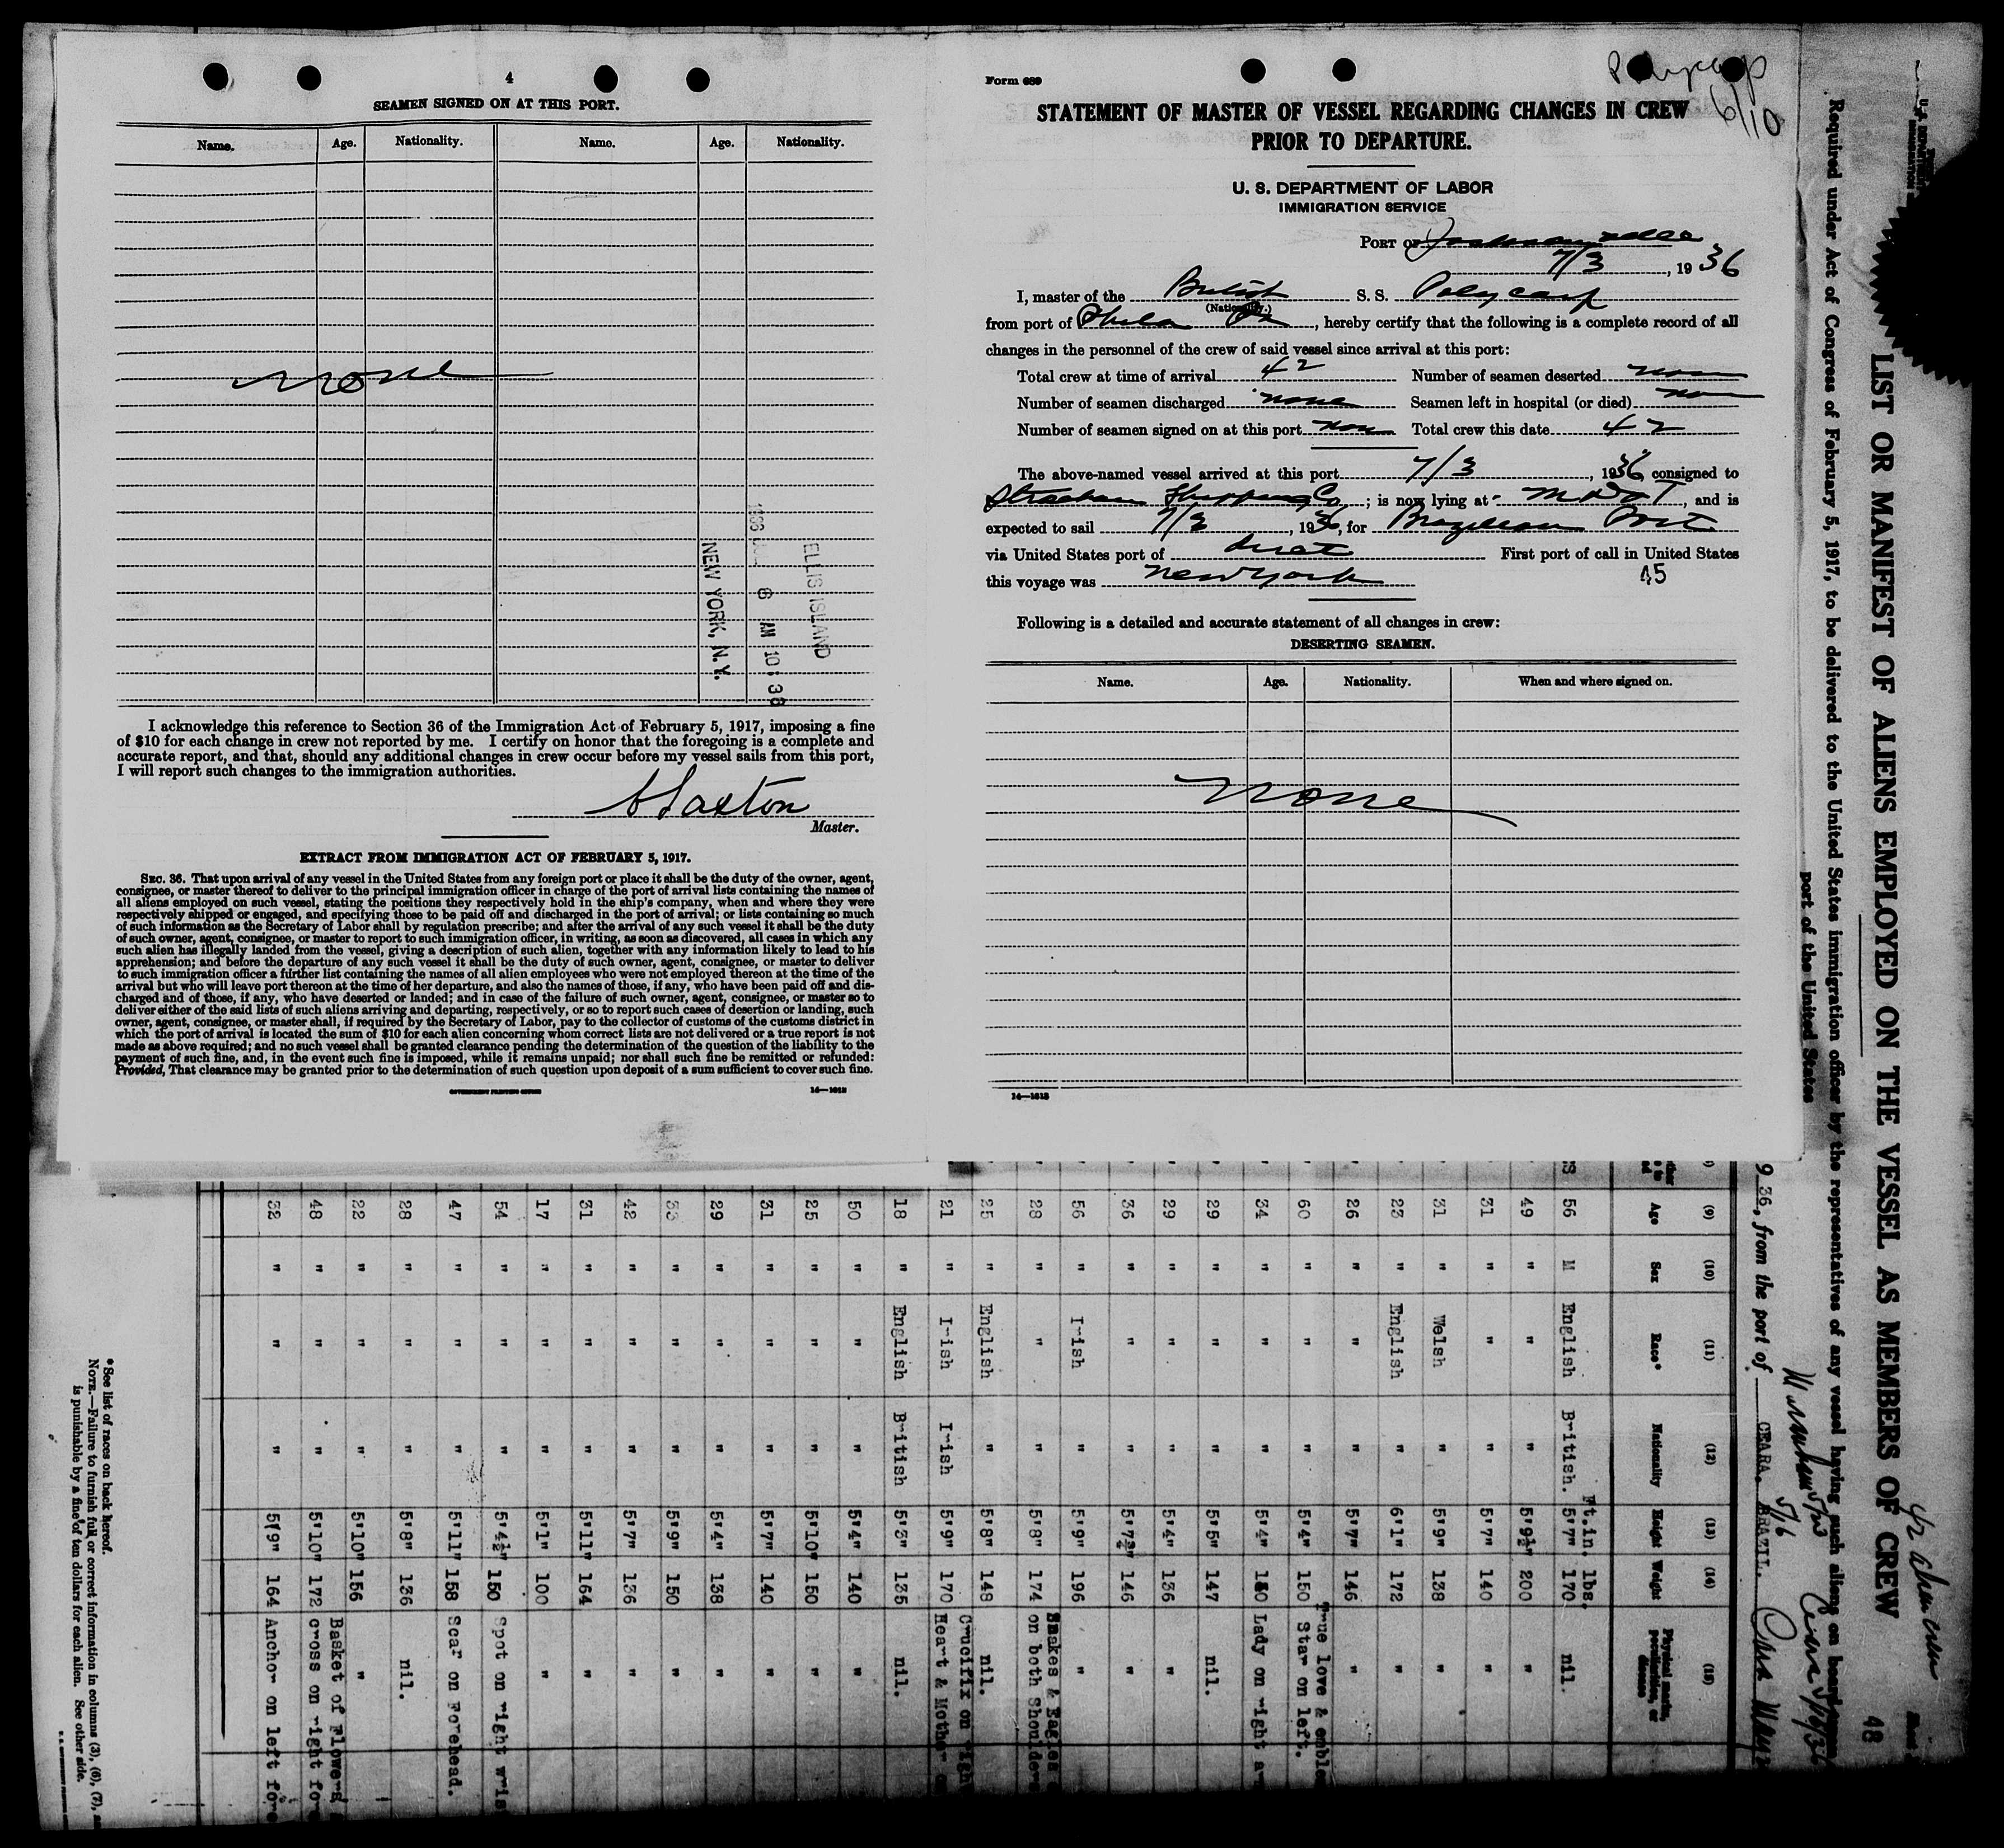 4
SEAMEN SIGNED ON AT THIS PORT.
Name. Age. Nationality. Name. Age. Nationality.
none
ELLIS ISLAND
6 AM 10:38
NEW YORK, N.Y.
I acknowledge this reference to Section 36 of the Immigration Act of February 5, 1917, imposing a fine
of $10 for each change in crew not reported by me. I certify on honor that the foregoing is a complete and
accurate report, and that, should any additional changes in crew occur before my vessel sails from this port,
I will report such changes to the immigration authorities.
Master.
EXTRACT FROM IMMIGRATION ACT OF FEBRUARY 5, 1917.
SEC. 36. That upon arrival of any vessel in the United States from any foreign port or place it shall be the duty of the owner, agent,
consignee, or master thereof to deliver to the principal immigration officer in charge of the port of arrival lists containing the names of
all aliens employed on such vessel, stating the positions they respectively hold in the ship's company, when and where they were
respectively shipped or engaged, and specifying those to be paid off and discharged in the port of arrival; or lists containing so much
of such information as the Secretary of Labor shall by regulation prescribe; and after the arrival of any such vessel it shall be the duty
of such owner, agent, consignee, or master to report to such immigration officer, in writing, as soon as discovered, all cases in which any
such alien has illegally landed from the vessel, giving a description of such alien, together with any information likely to lead to his
apprehension; and before the departure of any such vessel it shall be the duty of such owner, agent, consignee, or master to deliver
to such immigration officer a further list containing the names of all alien employees who were not employed thereon at the time of the
arrival but who will leave port thereon at the time of her departure, and also the names of those, if any, who have been paid off and dis-
charged and of those, if any, who have deserted or landed; and in case of the failure of such owner, agent, consignee, or master so to
deliver either of the said lists of such aliens arriving and departing, respectively, or so to report such cases of desertion or landing, such
owner, agent, consignee, or master shall, if required by the Secretary of Labor, pay to the collector of customs of the customs district in
which the port of arrival is located the sum of $10 for each alien concerning whom correct lists are not delivered or a true report is not
made as above required; and no such vessel shall be granted clearance pending the determination of the question of the liability to the
payment of such fine, and, in the event such fine is imposed, while it remains unpaid; nor shall such fine be remitted or refunded:
Provided, That clearance may be granted prior to the determination of such question upon deposit of a sum sufficient to cover such fine.
GOVERNMENT PRINTING OFFICE 14—1613
Polycarp
6/10
Form 689
STATEMENT OF MASTER OF VESSEL REGARDING CHANGES IN CREW
PRIOR TO DEPARTURE.
U. S. DEPARTMENT OF LABOR
IMMIGRATION SERVICE
PORT OF Jacksonville
7/3, 1936
I, master of the British S. S. Polycarp
(Nationality.)
from port of Phila Pa, hereby certify that the following is a complete record of all
changes in the personnel of the crew of said vessel since arrival at this port:
Total crew at time of arrival 42 Number of seamen deserted none
Number of seamen discharged none Seamen left in hospital (or died) none
Number of seamen signed on at this port none Total crew this date 42
The above-named vessel arrived at this port 7/3, 1936 consigned to
Strachan Shipping Co; is now lying at M D & T, and is
expected to sail 7/3, 1936, for Brazilian Port
via United States port of direct First port of call in United States
this voyage was New York 45
Following is a detailed and accurate statement of all changes in crew:
DESERTING SEAMEN.
Name. Age. Nationality. When and where signed on.
none
14—1613
LIST OR MANIFEST OF ALIENS EMPLOYED ON THE VESSEL AS MEMBERS OF CREW
48
Required under Act of Congress of February 5, 1917, to be delivered to the United States immigration officer by the representatives of any vessel having such aliens on board upon
port of the United States
936, from the port of CEARA, BRAZIL.
(9) (10) (11) (12) (13) (14) (15)
Age Sex Race* Nationality Height Weight Physical marks, peculiarities, or disease
Ft.in. lbs.
56 M English British. 5'7" 170 nil.
49 " " " 5'9½" 200 "
31 " " " 5'7" 140 "
31 " Welsh " 5'9" 138 "
23 " English " 6'1" 172 "
26 " " " 5'7" 146 "
True love & emble
60 " " " 5'4" 150 Star on left.
34 " " " 5'4" 180 Lady on right a
29 " " " 5'5" 147 nil.
29 " " " 5'4" 136 "
36 " " " 5'7½" 146 "
56 " Irish " 5'9" 196 "
Snakes & Eagles
28 " " " 5'8" 174 on both Shoulders
25 " English " 5'8" 148 nil.
Crucifix on righ
21 " Irish Irish 5'9" 170 Heart & Mother
18 " English British 5'3" 135 nil.
50 " " " 5'4" 140 "
25 " " " 5'10" 150 "
31 " " " 5'7" 140 "
29 " " " 5'4" 138 "
33 " " " 5'9" 150 "
42 " " " 5'7" 136 "
31 " " " 5'11" 164 "
17 " " " 5'1" 100 "
54 " " " 5'4½" 150 Spot on right wris
47 " " " 5'11" 158 Scar on Forehead.
28 " " " 5'8" 136 nil.
22 " " " 5'10" 156 "
Basket of Flowers
48 " " " 5'10" 172 cross on right fore
32 " " " 5'9" 164 Anchor on left fore
*See list of races on back hereof.
NOTE.—Failure to furnish full or correct information in columns (3), (6), (7),
is punishable by a fine of ten dollars for each alien. See other side.